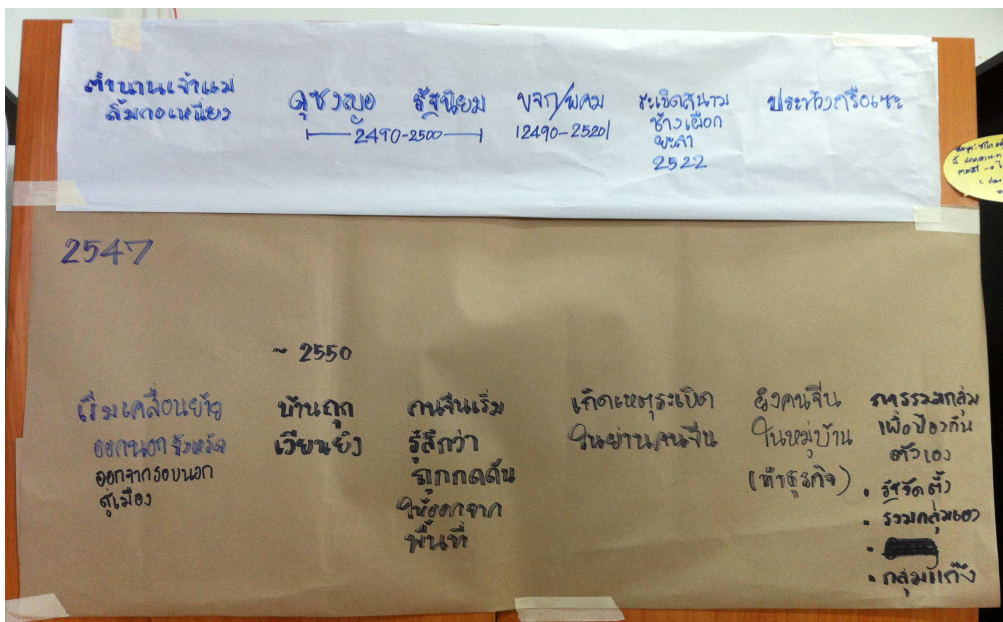 ตำนานเจ้าแม่
ลิ้มกอเหนี่ยว
ดุซงญอ
รัฐนิยม
2490-2500
ขจก/พคม
(2490-2520)
ระเบิดสนาม
ช้างเผือก
ยะลา
2522
ประท้วงกรือเซะ
2547
เริ่มเคลื่อนย้าย
ออกนอกจังหวัด
ออกจากรอบนอก
สู่เมือง
~ 2550
บ้านถูก
เวียนยิง
คนจีนเริ่ม
รู้สึกว่า
ถูกกดดัน
ให้ออกจาก
พื้นที่
เกิดเหตุระเบิด
ในย่านคนจีน
ยิงคนจีน
ในหมู่บ้าน
(ทำธุรกิจ)
การรวมกลุ่ม
เพื่อป้องกัน
ตัวเอง
• รัฐจัดตั้ง
• รวมกลุ่มเอง
•
• กลุ่มแก๊ง